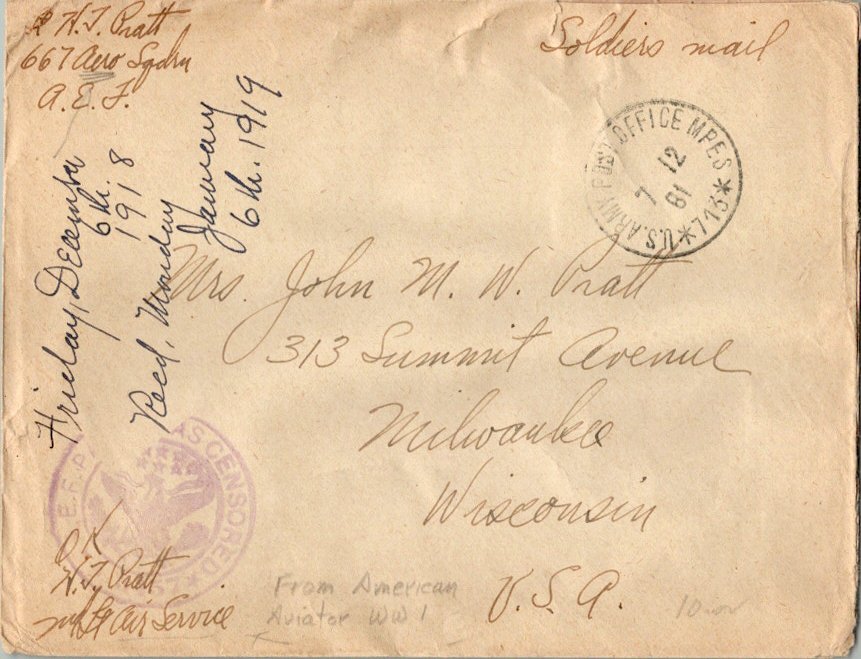 H. T. Pratt
667 Aero Sqdrn
A. E. F.
Soldiers mail
U.S. ARMY POST OFFICE MPES
*713*
7 12
81
Friday, December
6th.
1918
Recd, Monday
January
6th. 1919
Mrs. John M. W. Pratt
313 Summit Avenue
Milwaukee
Wisconsin
U. S. A.
A.E.F. PASSED AS CENSORED
OK
H. T. Pratt
Lt Air Service
From American
Aviator WW 1